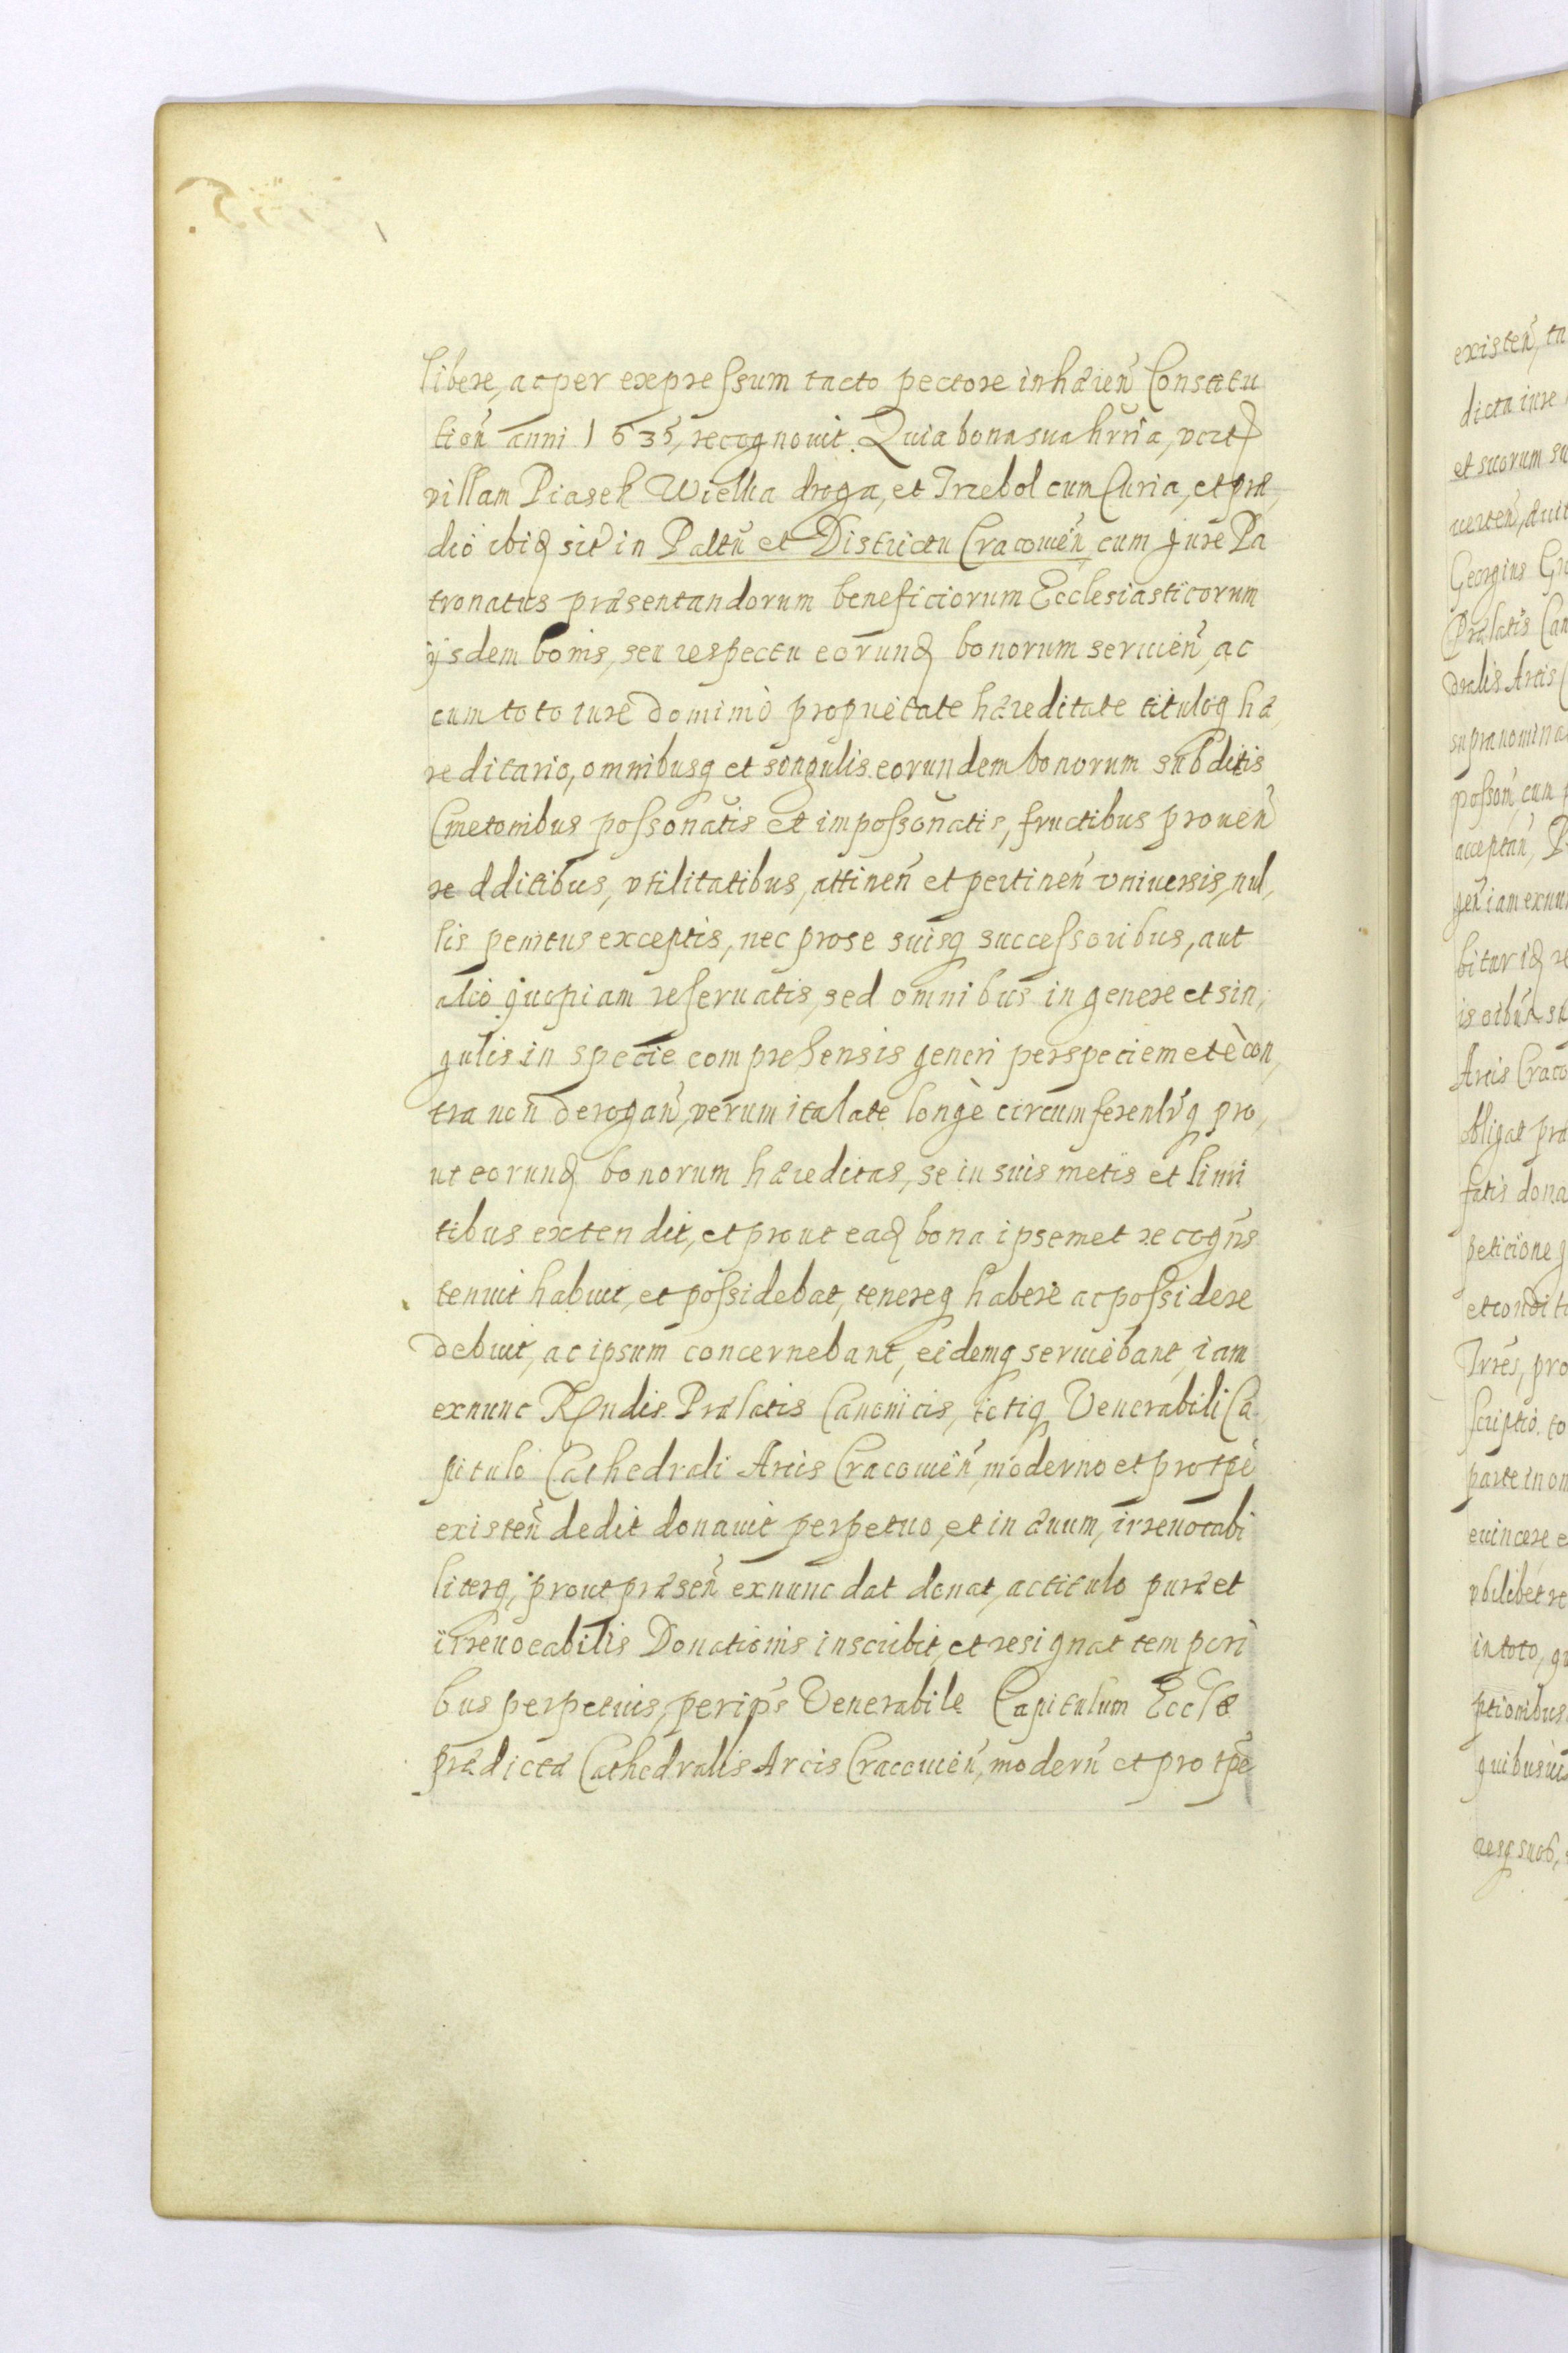 libere, ac per expressum tacto pectore inhæren̄ Constitu
tion̄ anni 1635, recognouit. Quia bona sua hrria, vczt
villam Piasek Wielka droga, et Trzebol cum Curia, et præ,
dio ibiq sit in Paltu et Districtu Cracouien̄, cum Jure Pa
tronatus præsentandorum beneficiorum Ecclesiasticorum
ijsdem bonis, seu respectu eorunq bonorum seruien̄, ac
cum toto iure dominio proprietate hæreditate tituloq hæ,
reditario, omnibusq et singulis eorundem bonorum subditis
Cmetonibus possonatis et impossonatis, fructibus prouen̄
redditibus, vtilitatibus, attinen̄ et pertinen̄ vniuersis, nul,
lis penitus exceptis, nec pro se suisq successoribus, aut
alio quopiam reseruatis, sed omnibus in genere et sin,
gulis in specie comprehensis generi per speciem et è con,
tra non derogan̄, verum ita late longè circumferentrq pro,
ut eorunq bonorum hæreditas, se in suis metis et limi
tibus extendit, et prout eaq bona ipsemet recogn̄s
tenuit habuit, et possidebat, tenereq habere ac possidere
debuit, ac ipsum concernebant, eidemq seruiebant, iam
exnunc Rndis Prælatis Canonicis, totiq Venerabili Ca
pitulo Cathedrali Arcis Cracouien̄, moderno et pro tpe
existen̄ dedit donauit perpetuo, et in æuum, irreuocabi
literq, prout præsen̄ exnunc dat donat, ac titulo puræ et
irreuocabilis Donationis inscribit, et resignat tempori
bus perpetuis, per ips Venerabile Capitulum Ecclæ
prædictæ Cathedralis Arcis Cracouien̄, modern̄ et pro tpe
existen̄,
dicta iure
et suorum
Georgius
Prælatis
dralis Arcis
acceptan̄,
Arcis
obligat
fatis
peticione
parte in
euincere
in toto,
ptionibus
quibusuis